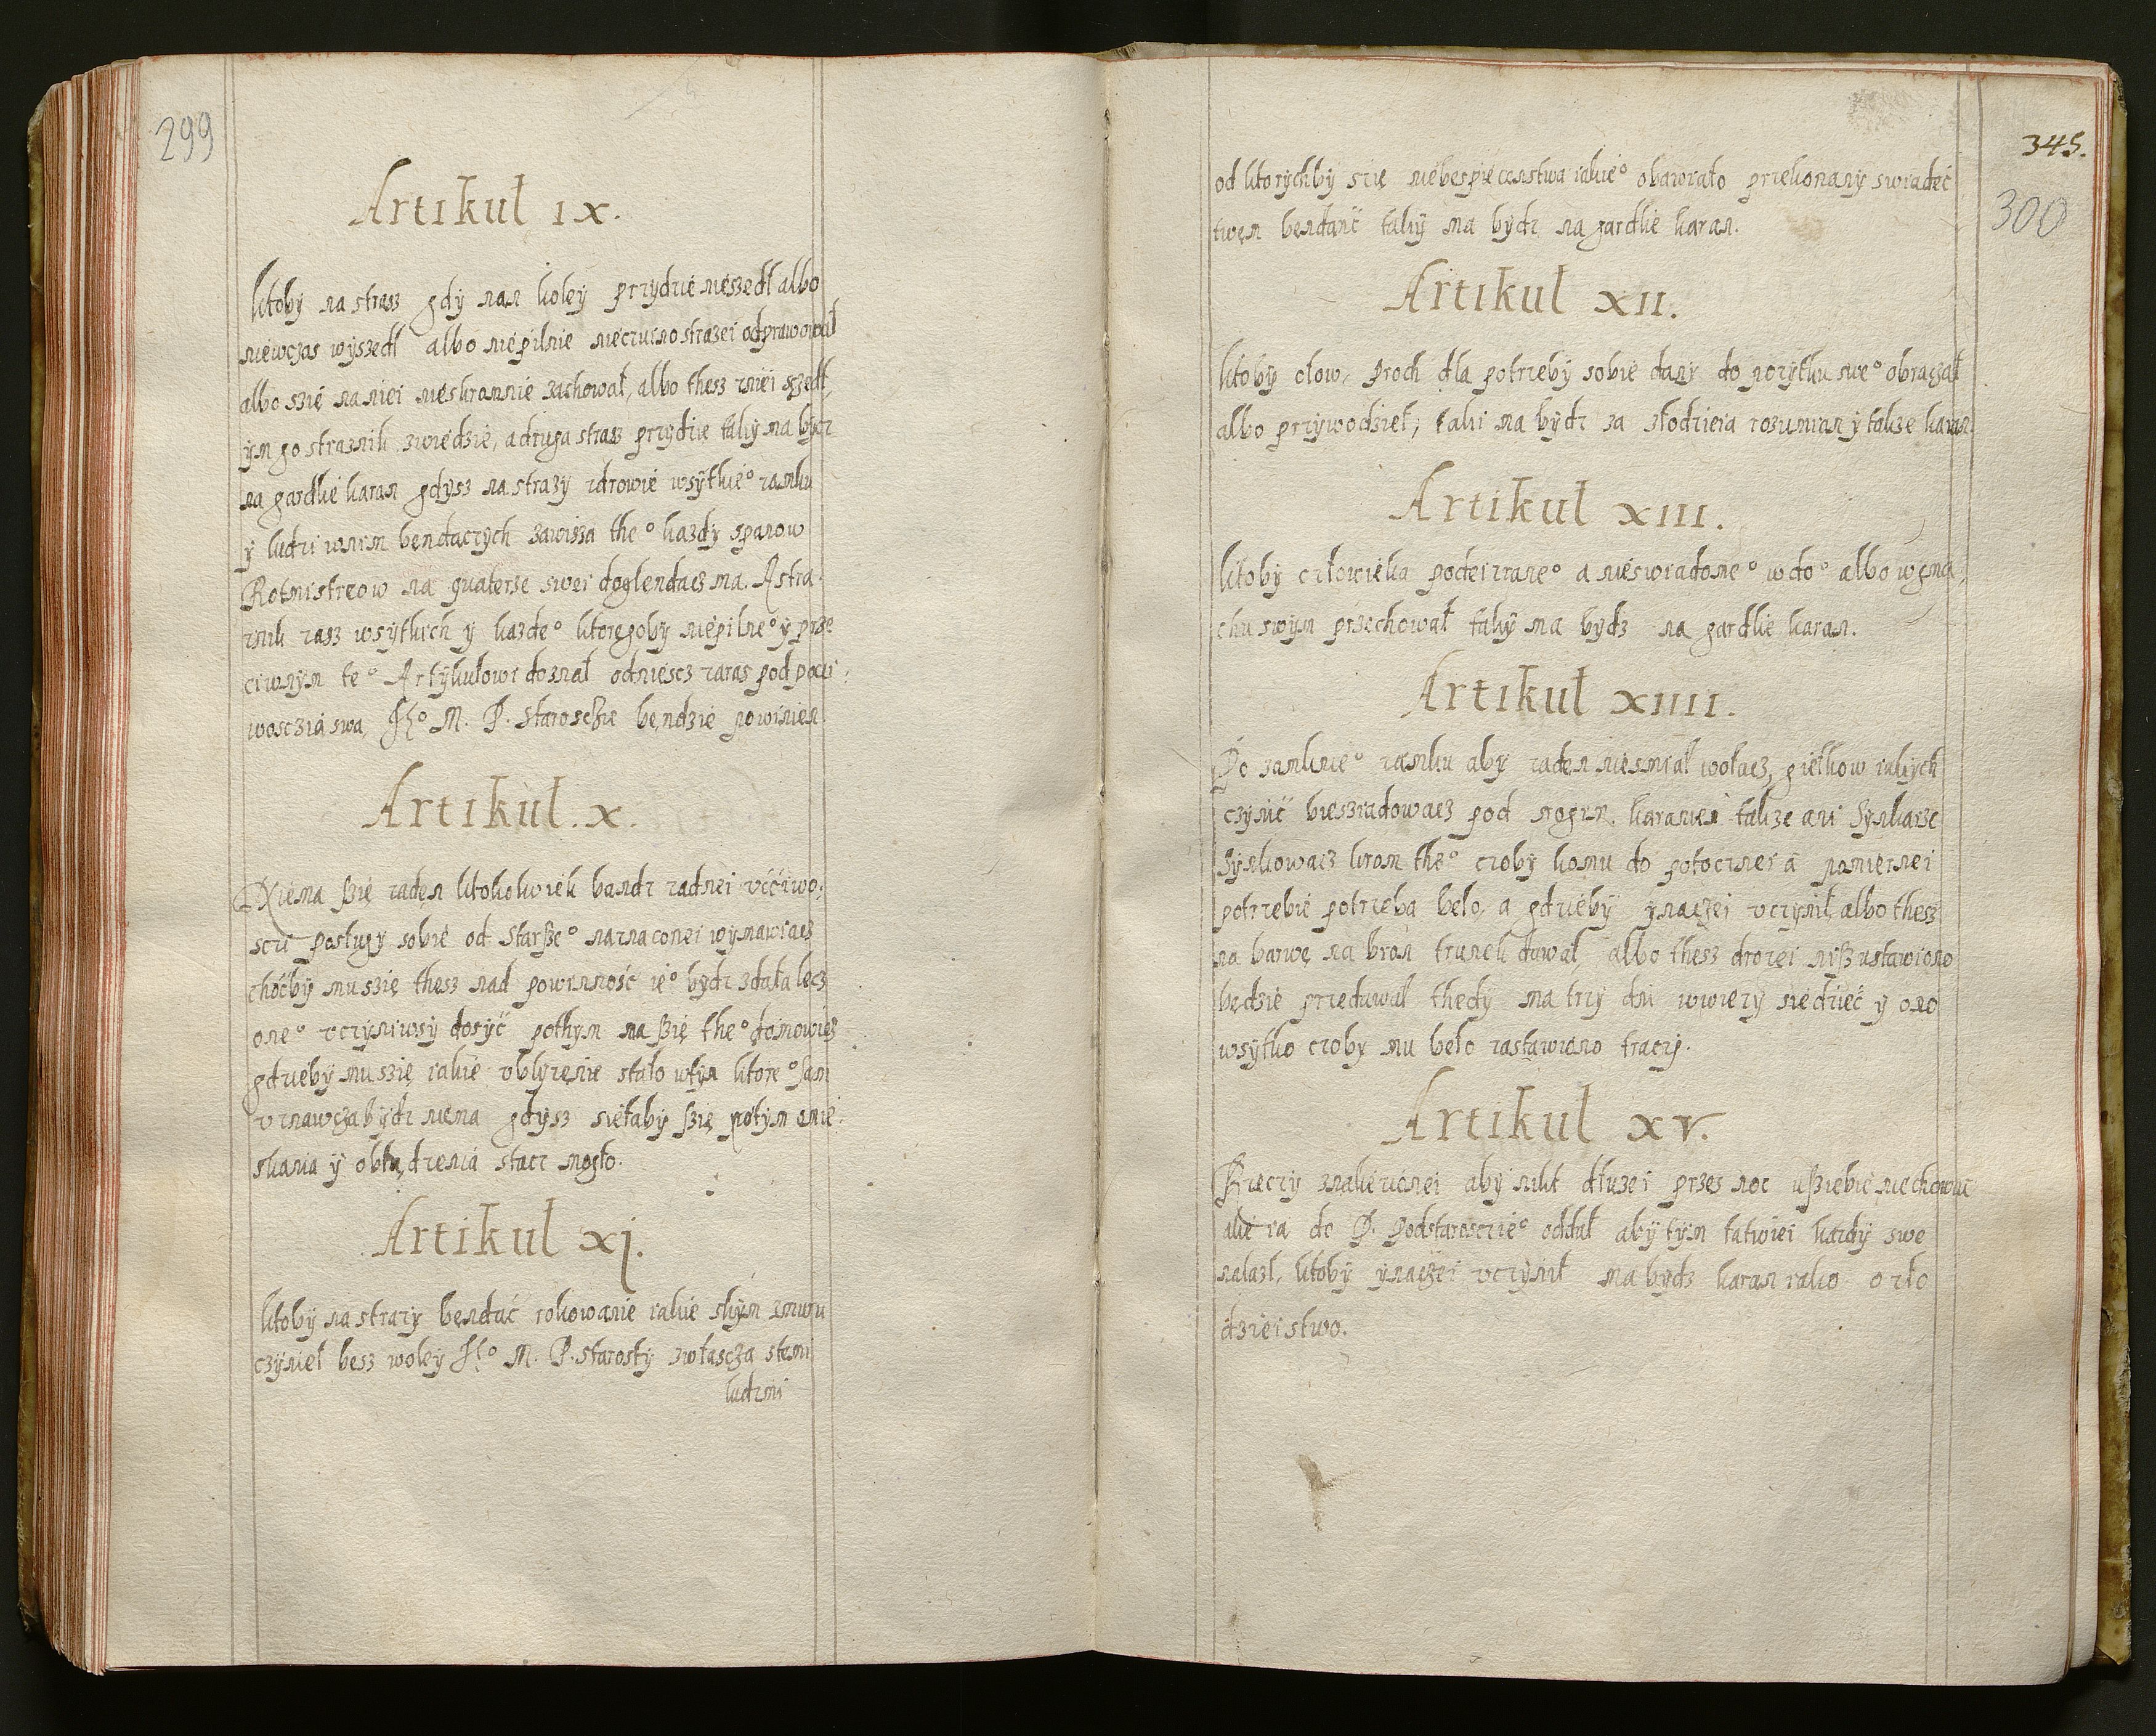 299
Artikuł IX.
ktoby na strasz gdÿ nan koleÿ przÿdzie nieszedł albo
niewczas wÿszedł albo niepilnie nieczuino strazei odprawował
albo szię na niei nieskromnie zachował, albo thesz zniei szedł,
ÿm go straznik zwiedzie, a druga strasz przÿdzie takÿ ma bÿdz
na gardłie karan gdysz na strazÿ zdrowie wsÿtkie° zamku
ÿ ludzi wnim bendaczÿch zawissa the° kazdÿ spanow
Rotmistrzow na quaterze swei doglendacz ma. A stra
znik zasz wsÿtkich ÿ kazde° ktoregobÿ niepilne° ÿ prze
ciwnÿm te° Artÿkułowi doznał odniescz zaras pod pocci:
wosczia swa, Jh° M. P. Starosczie bendzie powinien
Artikuł. X.
Niema szię zaden ktokolwiek bandz zadnei vććiwo:
sczi posługÿ sobie od Starsze° naznaconei wÿmawiacz
choćbÿ mu szię thesz nad powinnośc ie° bÿdz zdała lecz
one° vczÿniwsÿ dosÿć pothÿm ma szię the° domowicz
gdziebÿ mu szię iakie vblÿzenie stało wtÿm ktore° sam
vznawcza bÿdz niema gdÿsz sietabÿ szię potÿm omie:
skania ÿ obłądzenia stacz mogło.
Artikuł XI.
ktobÿ na strazÿ bendać rokowanie iakie skÿm zmuru
czÿnieł besz woleÿ Jh° M. P. Starostÿ zwłascza stemi
ludzmi
345.
300
od ktorÿchbÿ szię niebespieczenstwa iakie° obawiało przekonanÿ swiadec
twem bendanć takÿ ma bÿdz na gardłie karan.
Artikuł XII.
ktobÿ ołow, proch dla potrzebÿ sobie danÿ do pozÿtku swe° obraczał
albo przÿwodzieł, taki ma bÿdz za złodzieia rozumian ÿ takze karan
Artikuł XIII.
ktobÿ człowieka podeirzane° a nieswiadome° wdo° albo wgma,
chu swÿm przechował takÿ ma bÿdz na gardłie karan.
Artikuł XIIII.
Po zamknie° zamku abÿ zaden niesmiał wołacz, giełkow iakich
czÿnić biesziadowacz pod srogim karaniei takze ani Sÿnkarze
Sÿnkowacz krom the° czobÿ komu do potocznei a pomiernei
potrzebie potrzeba beło, a gdziebÿ ÿnaczei vczÿnił, albo thesz
na barwę na bron trunek dawał, albo thesz drozei nisz ustawiono
będzie przedawał thedÿ ma trzÿ dni wwiezÿ siedzieć ÿ ono
wsÿtko czobÿ mu beło zastawiono traczi.
Artikuł XV.
Rzeczÿ znalezionei abÿ nikt dłuzei przes noc uszebie niechował
ale ia do P. Podstarosczie° oddał abÿ tÿm łatwiei kazdÿ swe
nalazł, ktobÿ ÿnaczei vczÿnił ma bÿdz karan iako o zło
dzieistwo.